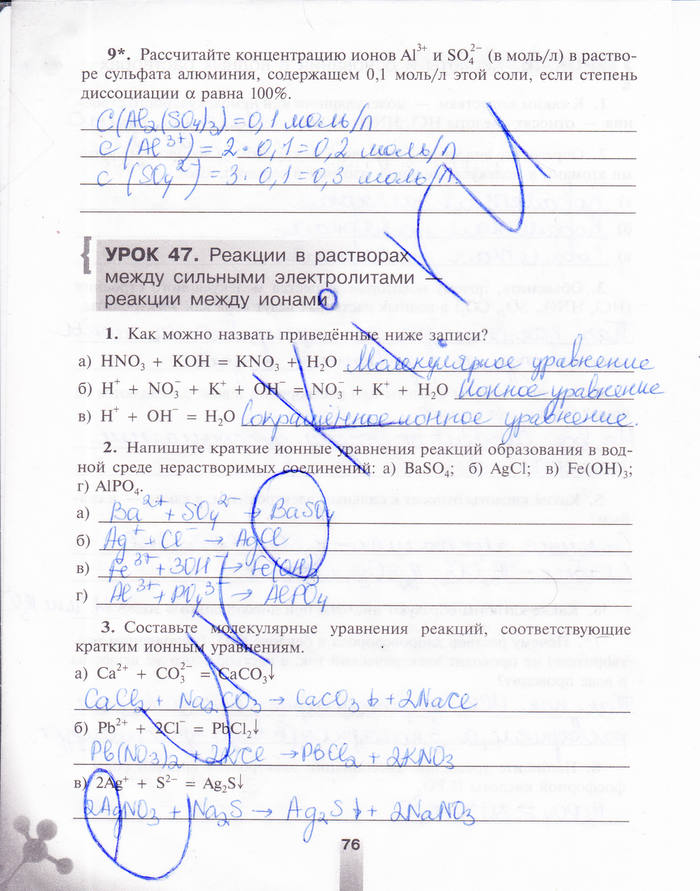 9*. Рассчитайте концентрацию ионов Al³⁺ и SO₄²⁻ (в моль/л) в раство-
ре сульфата алюминия, содержащем 0,1 моль/л этой соли, если степень
диссоциации α равна 100%.
C(Al₂(SO₄)₃) = 0,1 моль/л
c(Al³⁺) = 2 · 0,1 = 0,2 моль/л
c(SO₄²⁻) = 3 · 0,1 = 0,3 моль/л.
УРОК 47. Реакции в растворах
между сильными электролитами —
реакции между ионами
1. Как можно назвать приведённые ниже записи?
а) HNO₃ + KOH = KNO₃ + H₂O Молекулярное уравнение
б) H⁺ + NO₃⁻ + K⁺ + OH⁻ = NO₃⁻ + K⁺ + H₂O Ионное уравнение
в) H⁺ + OH⁻ = H₂O Сокращённое ионное уравнение.
2. Напишите краткие ионные уравнения реакций образования в вод-
ной среде нерастворимых соединений: а) BaSO₄; б) AgCl; в) Fe(OH)₃;
г) AlPO₄.
а) Ba²⁺ + SO₄²⁻ → BaSO₄
б) Ag⁺ + Cl⁻ → AgCl
в) Fe³⁺ + 3OH⁻ → Fe(OH)₃
г) Al³⁺ + PO₄³⁻ → AlPO₄
3. Составьте молекулярные уравнения реакций, соответствующие
кратким ионным уравнениям.
а) Ca²⁺ + CO₃²⁻ = CaCO₃↓
CaCl₂ + Na₂CO₃ → CaCO₃↓ + 2NaCl
б) Pb²⁺ + 2Cl⁻ = PbCl₂↓
Pb(NO₃)₂ + 2KCl → PbCl₂ + 2KNO₃
в) 2Ag⁺ + S²⁻ = Ag₂S↓
2AgNO₃ + Na₂S → Ag₂S↓ + 2NaNO₃
76